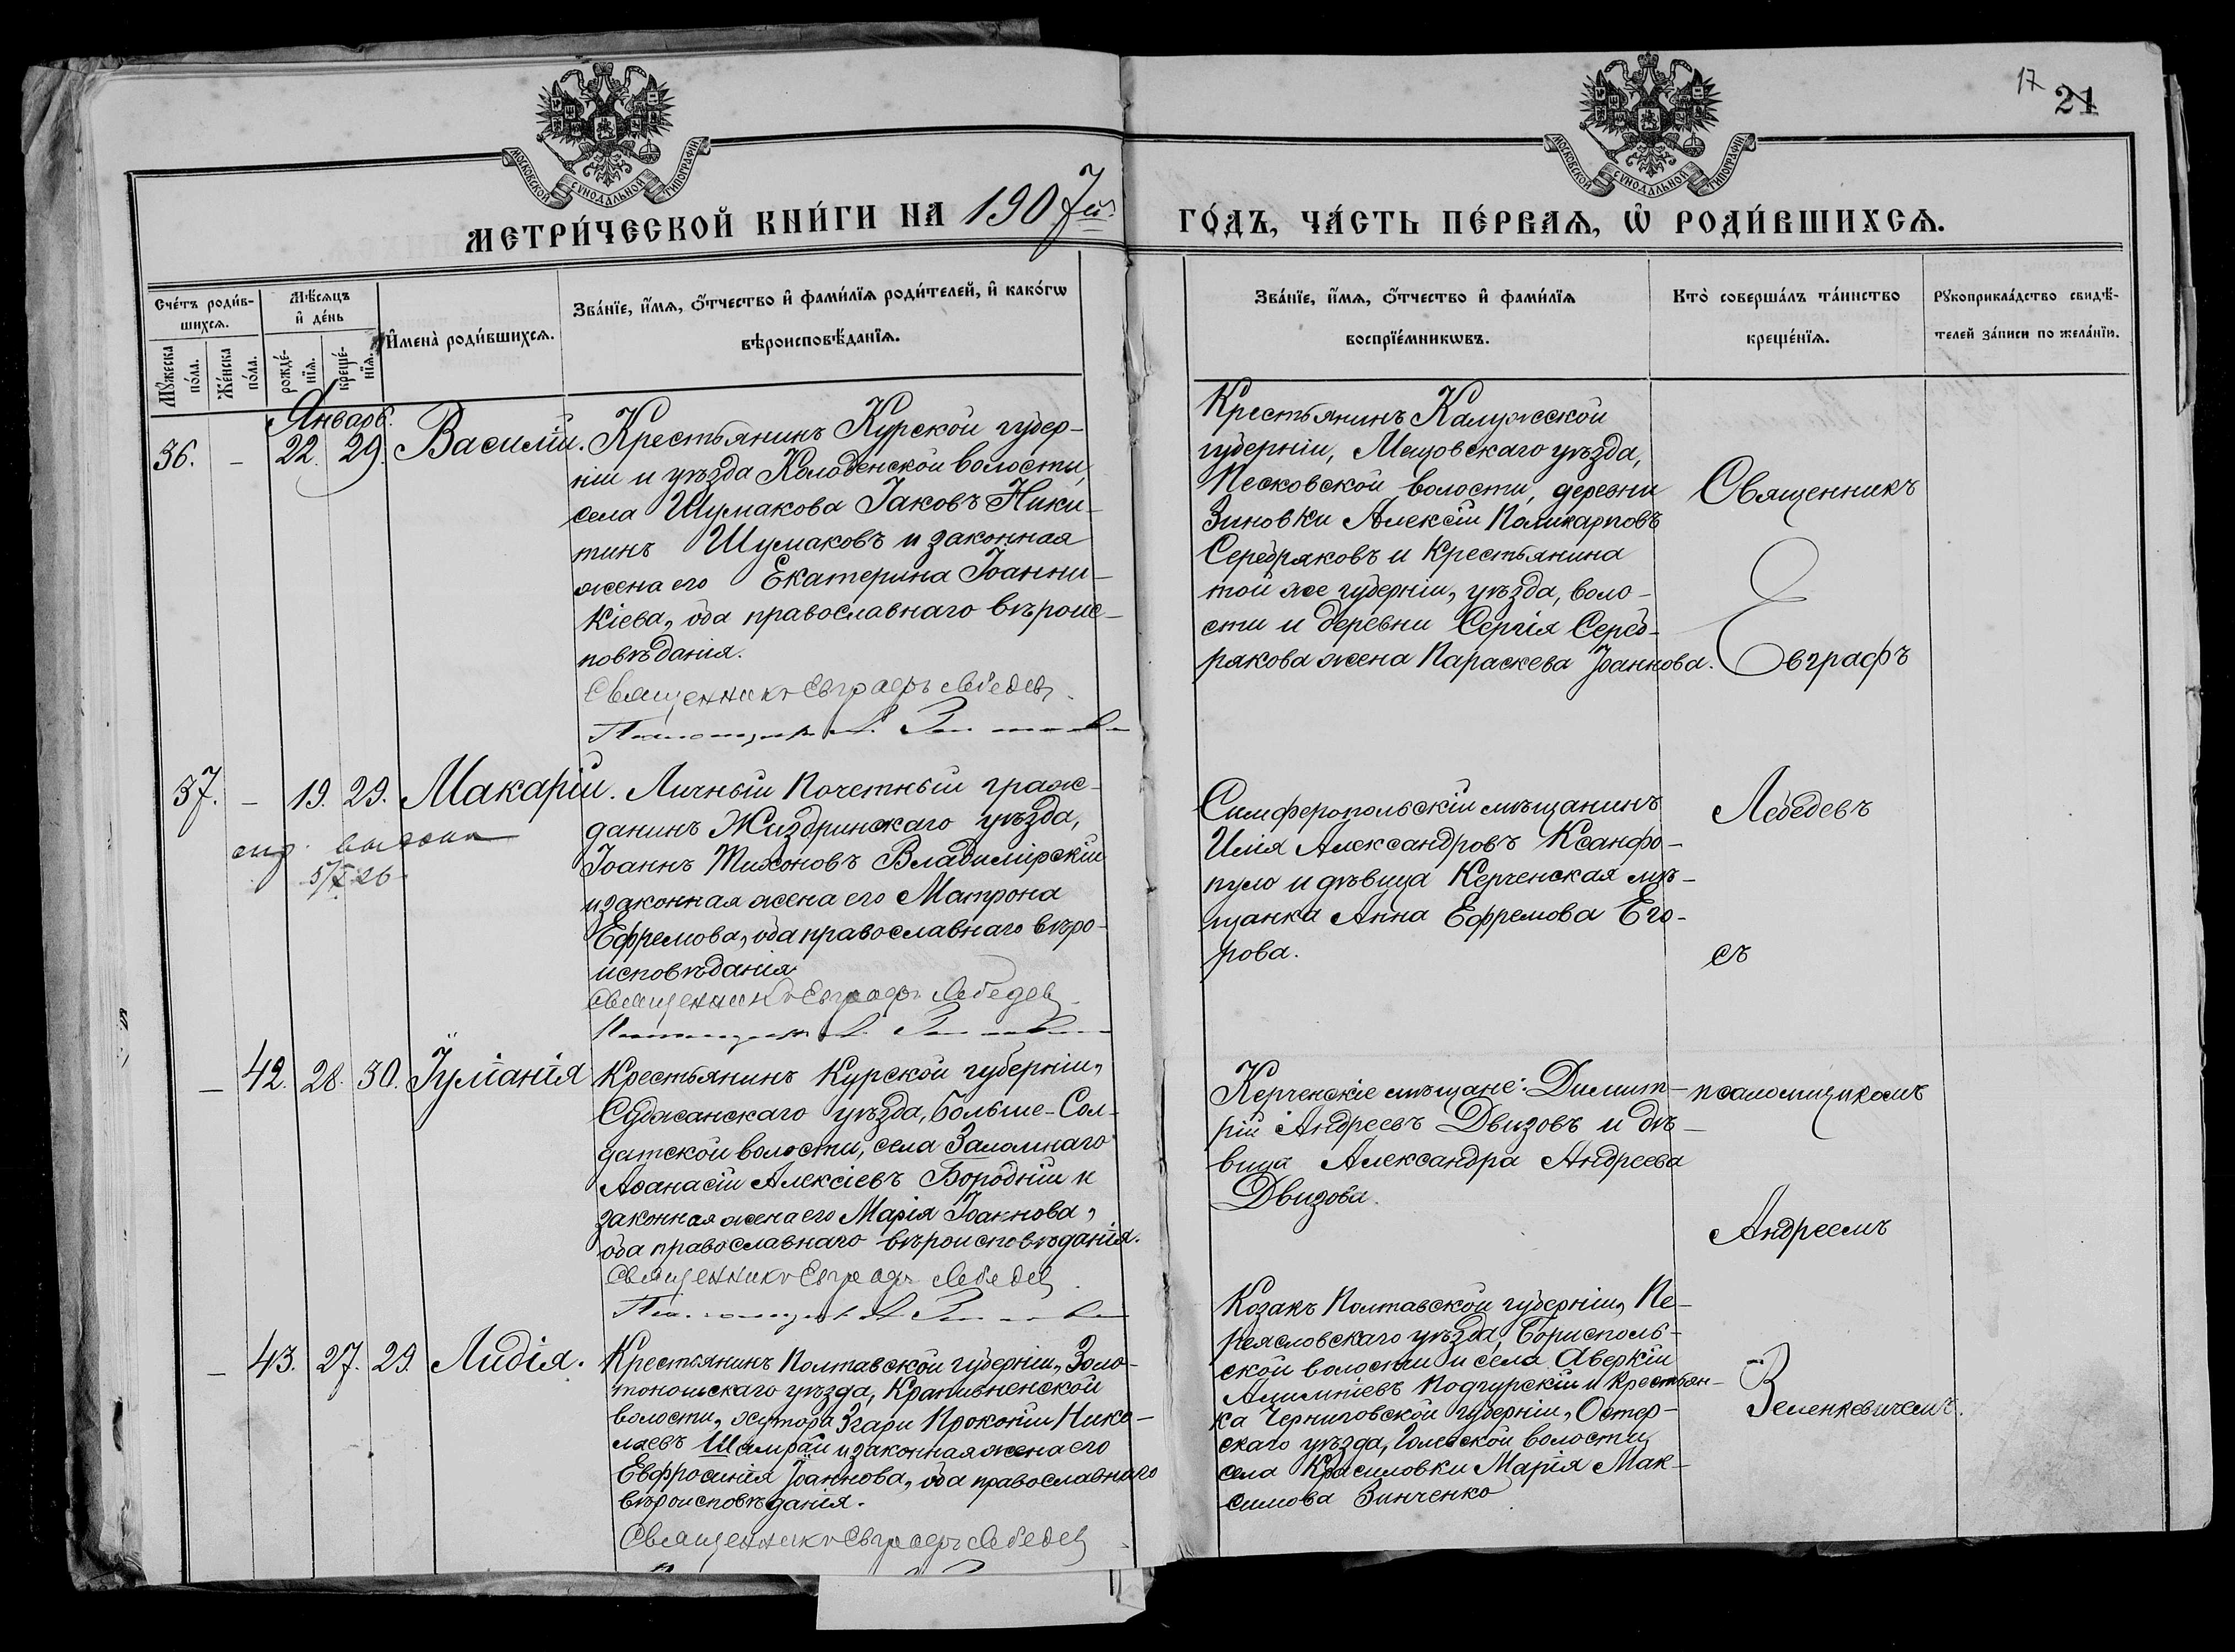 17
21
МОСКОВСКОЙ СУНОДАЛЬНОЙ ТИПОГРАФІИ
МОСКОВСКОЙ СУНОДАЛЬНОЙ ТИПОГРАФІИ
МЕТРИ́ЧЕСКОЙ КНИ́ГИ НА 1907й
ГО́ДЪ, ЧА́СТЬ ПЕ́РВАѦ, Ѡ҆ РОДИ́ВШИХСѦ.
Сче́тъ роди́в-
шихсѧ.
Мꙋжеска по́ла.
Же́нска по́ла.
Мѣ́сяцъ
и҆ де́нь
рожде́-
нїѧ.
креще́-
нїѧ.
И҆мена̀ роди́вшихсѧ.
Зва́нїе, и҆́мѧ, ѻ҆́тчество и҆ фами́лїѧ роди́телей, и҆ како́гѡ
вѣроисповѣ́данїѧ.
Зва́нїе, и҆́мѧ, ѻ҆́тчество и҆ фами́лїѧ
воспрїе́мникѡвъ.
Кто̀ соверша́лъ та́инство
креще́нїѧ.
Рꙋкоприкла́дство свидѣ́-
телей за́писи по жела́нїю.
Январь.
36. – 22. 29. Василій.
Крестьянинъ Курской губер-
ніи и уѣзда Колоденской волости,
села Шумакова Іаковъ Ники-
тинъ Шумаковъ и законная
жена его Екатерина Іоанни-
кіева, оба православнаго вѣроис-
повѣданія.
Священникъ Евграфъ Лебедев
Крестьянинъ Калужсской
губерніи, Мещовскаго уѣзда,
Песковской волости, деревни
Зиновки Алексій Поликарповъ
Серебряковъ и крестьянина
той же губерніи, уѣзда, воло-
сти и деревни Сергія Сереб-
рякова жена Параскева Іоаннова.
Священникъ
Евграфъ
37. – 19. 29. Макарій.
5/X 26
Личный Почетный граж-
данинъ Жиздринскаго уѣзда,
Іоаннъ Тихоновъ Владимірскій
и законная жена его Матрона
Ефремова, оба православнаго вѣро-
исповѣданія
Священникъ Евграфъ Лебедев
Симферопольскій мѣщанинъ
Илія Александровъ Ксанфо-
пуло и дѣвица Керченская мѣ-
щанка Анна Ефремова Его-
рова.
Лебедевъ
съ
– 42. 28. 30. Іуліанія
Крестьянинъ Курской губерніи,
Суджанскаго уѣзда, Больше-Сол-
датской волости, села Заломнаго
Аѳанасій Алексіевъ Бородній и
законная жена его Марія Іоаннова,
оба православнаго вѣроисповѣданія.
Священникъ Евграфъ Лебедев
Керченскіе мѣщане: Димит-
рій Андреевъ Двизовъ и дѣ-
вица Александра Андреева
Двизова.
псаломщикомъ
Андреемъ
– 43. 27. 29. Лидія.
Крестьянинъ Полтавской губерніи, Золо-
тоношскаго уѣзда, Кропивненской
волости, хутора Згари Прокопій Нико-
лаевъ Шамрай и законная жена его
Евфросинія Іоаннова, оба православнаго
вѣроисповѣданія.
Священникъ Евграфъ Лебедев
Козакъ Полтавской губерніи, Пе-
реясловскаго уѣзда, Борисполь-
ской волости и села Аверкій
Алимпіевъ Подгурскій и крестьян-
ка Черниговской губерніи, Остер-
скаго уѣзда, Гоголевской волости,
села Красиловки Марія Мак-
симова Зинченко
Зеленкевичемъ.